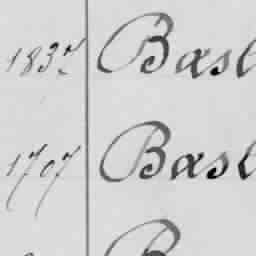 1837 Basl
1707 Basl